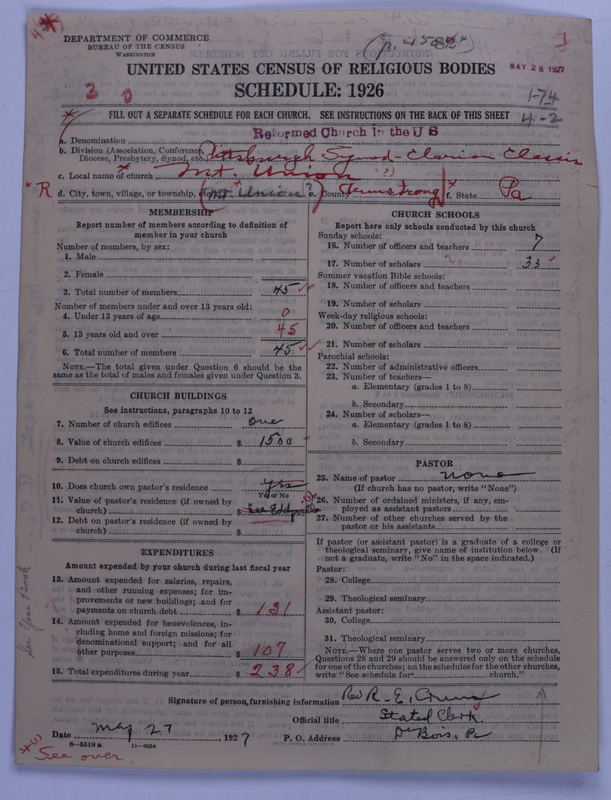 DEPARTMENT OF COMMERCE
BUREAU OF THE CENSUS
WASHINGTON
UNITED STATES CENSUS OF RELIGIOUS BODIES
MAY 28 1927
SCHEDULE: 1926
3 0
1-74
4-2
FILL OUT A SEPARATE SCHEDULE FOR EACH CHURCH. SEE INSTRUCTIONS ON THE BACK OF THIS SHEET
a. Denomination Reformed Church in the U S
b. Division (Association, Conference, Diocese, Presbytery, Synod, etc.) Pittsburgh Synod - Clarion Classis
c. Local name of church Mt. Union (?)
* R d. City, town, village, or township, (Mt Union?) e. County Armstrong f. State Pa
MEMBERSHIP
Report number of members according to definition of member in your church
Number of members, by sex:
1. Male
2. Female
3. Total number of members 45
Number of members under and over 13 years old:
4. Under 13 years of age 0
5. 13 years old and over 45
6. Total number of members 45
NOTE.—The total given under Question 6 should be the same as the total of males and females given under Question 3.
CHURCH BUILDINGS
See instructions, paragraphs 10 to 12
7. Number of church edifices one
8. Value of church edifices $ 1500
9. Debt on church edifices $
10. Does church own pastor's residence yes
Yes or No
11. Value of pastor's residence (if owned by church) $ See
12. Debt on pastor's residence (if owned by church) $
EXPENDITURES
Amount expended by your church during last fiscal year
13. Amount expended for salaries, repairs, and other running expenses; for improvements or new buildings; and for payments on church debt $ 131
14. Amount expended for benevolences, including home and foreign missions; for denominational support; and for all other purposes $ 107
15. Total expenditures during year $ 238
CHURCH SCHOOLS
Report here only schools conducted by this church
Sunday schools:
16. Number of officers and teachers 7
17. Number of scholars 33
Summer vacation Bible schools:
18. Number of officers and teachers
19. Number of scholars
Week-day religious schools:
20. Number of officers and teachers
21. Number of scholars
Parochial schools:
22. Number of administrative officers
23. Number of teachers—
a. Elementary (grades 1 to 8)
b. Secondary
24. Number of scholars—
a. Elementary (grades 1 to 8)
b. Secondary
PASTOR
25. Name of pastor none
(If church has no pastor, write "None")
26. Number of ordained ministers, if any, employed as assistant pastors
27. Number of other churches served by the pastor or his assistants
If pastor (or assistant pastor) is a graduate of a college or theological seminary, give name of institution below. (If not a graduate, write "No" in the space indicated.)
Pastor:
28. College
29. Theological seminary
Assistant pastor:
30. College
31. Theological seminary
NOTE.—Where one pastor serves two or more churches, Questions 28 and 29 should be answered only on the schedule for one of the churches; on the schedules for the other churches, write "See schedule for church."
Signature of person furnishing information Rev R. E.
Official title Stated Clerk
Date May 27, 1927 P. O. Address Du Bois, Pa
8—5518 a 11—9024
See over
See Year Book